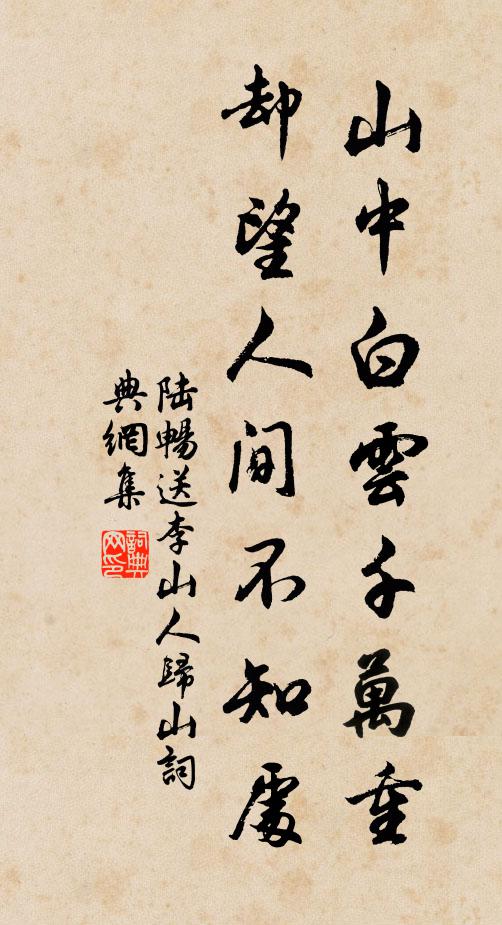 山中白雲千萬重
却望人間不知處
陸暢送李山人歸山詞
典網集
詞典
网印